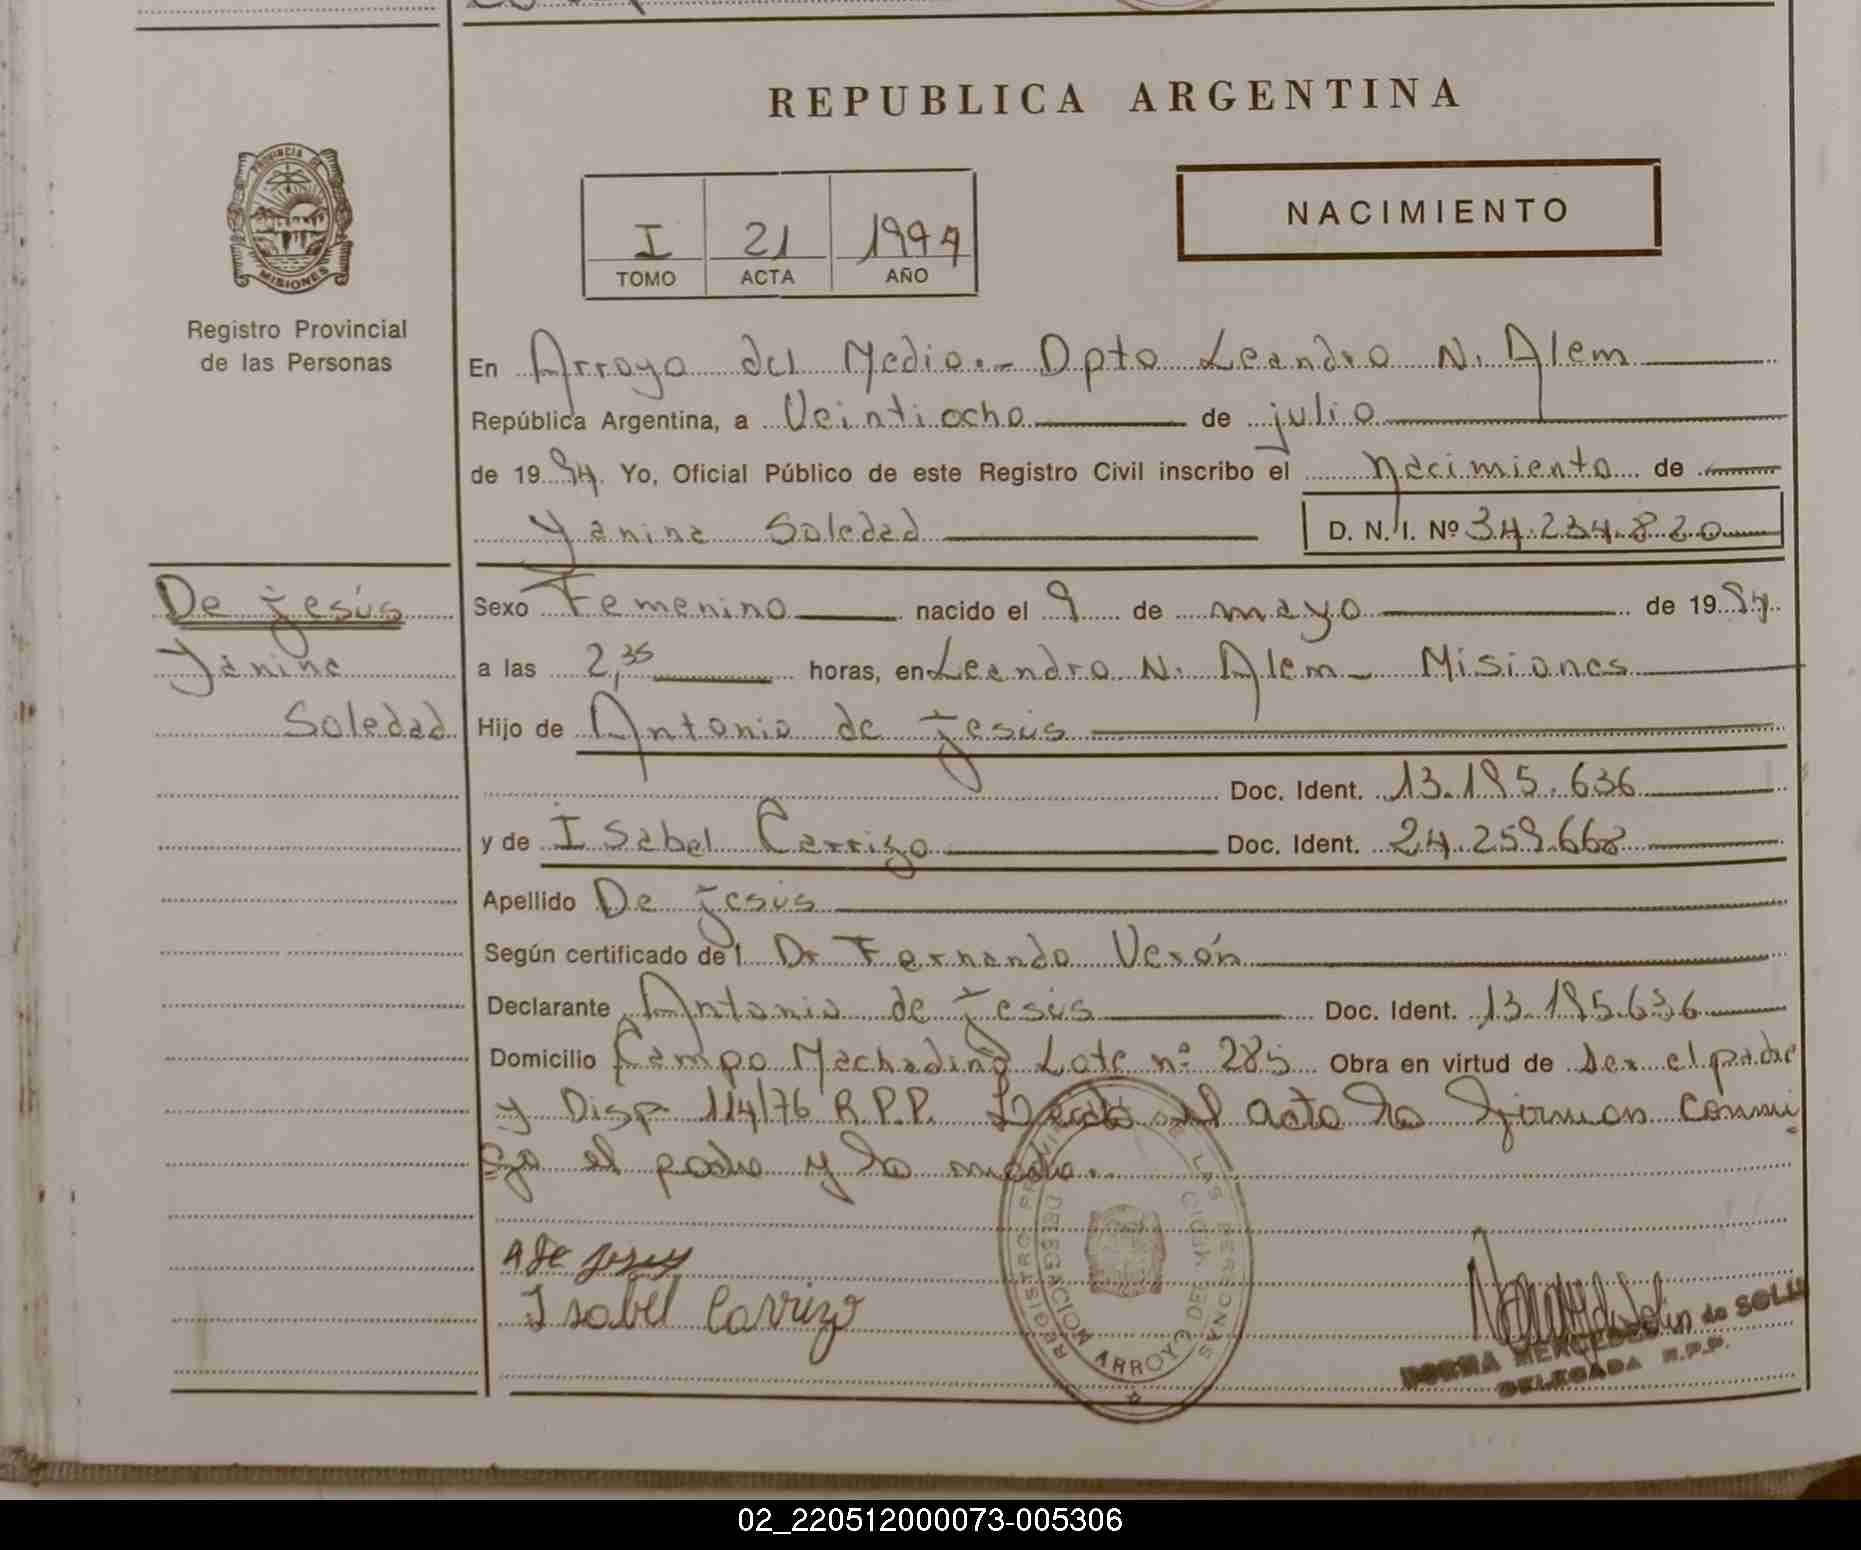 REPUBLICA ARGENTINA
PROVINCIA DE MISIONES
Registro Provincial
de las Personas
I 21 1994
TOMO ACTA AÑO
NACIMIENTO
En Arroyo del Medio.- Dpto Leandro N. Alem
República Argentina, a Veintiocho de julio
de 1994. Yo, Oficial Público de este Registro Civil inscribo el nacimiento de
Yanina Soledad D. N. I. Nº 34.234.820
De jesús
Yanina
Soledad
Sexo Femenino nacido el 9 de mayo de 19
a las 2,35 horas, en Leandro N. Alem - Misiones
Hijo de Antonio de jesús
Doc. Ident. 13.195.636
y de Isabel Carrizo Doc. Ident. 24.259.668
Apellido De jesús
Según certificado del Dr Fernando Verón
Declarante Antonio de jesús Doc. Ident. 13.195.636
Domicilio Campo Machadino Lote nº 285 Obra en virtud de ser el padre
y Disp 114/76 R.P.P. Leido el acta la firman conmi
go el padre y la madre.
A de jesus
Isabel Carrizo
REGISTRO PROVINCIAL DE LAS PERSONAS
DELEGACION ARROYO DEL MEDIO
NORMA MERCEDES de
DELEGADA R.P.P.
02_220512000073-005306